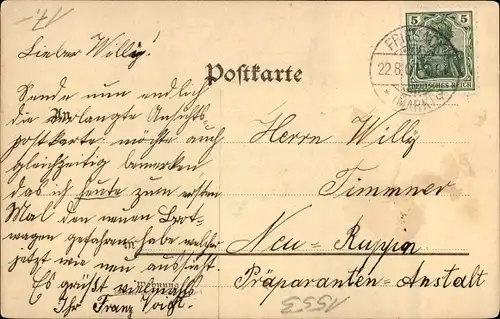 17.-
Lieber Willy!
Sende nun endlich
die verlangte Ansichts
postkarte. möchte auch
gleichzeitig bemerken
das ich heute zum ersten
Mal den neuen Brot-
wagen gefahren habe welcher
jetzt wie neu aussieht.
Es grüßt vielmals
Ihr Franz Voigt.
Postkarte
5 5
DEUTSCHES REICH
22.8.
(MARK)
Herrn Willy
Timmner
in Neu-Ruppin
Wohnung
Präparanten-Anstalt
1553